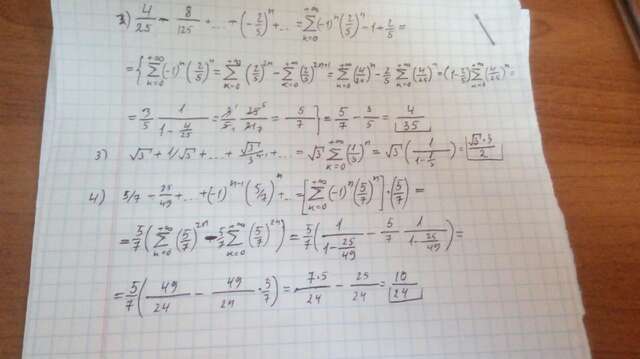 2) 4/25 - 8/125 + ... + (-2/5)^n + ... = Σ_{k=0}^{+∞} (-1)^n (2/5)^n - 1 + 2/5 =
= { Σ_{k=0}^{+∞} (-1)^n (2/5)^n = Σ_{k=0}^{+∞} (2/5)^{2n} - Σ_{k=0}^{+∞} (2/5)^{2n+1} = Σ_{k=0}^{+∞} (4/25)^n - 2/5 Σ_{k=0}^{+∞} (4/25)^n = (1 - 2/5) Σ_{k=0}^{+∞} (4/25)^n =
= 3/5 · 1/(1 - 4/25) = 3/5 · 25/21 = 5/7 } = 5/7 - 3/5 = 4/35
3) √3 + 1/√3 + ... + √3/3^n + ... = √3 Σ_{k=0}^{+∞} (1/3)^n = √3 (1/(1 - 1/3)) = √3·3/2
4) 5/7 - 25/49 + ... + (-1)^{n-1} (5/7)^n + ... = [ Σ_{k=0}^{+∞} (-1)^n (5/7)^n ] · (5/7) =
= 5/7 ( Σ_{k=0}^{+∞} (5/7)^{2n} - 5/7 Σ_{k=0}^{+∞} (5/7)^{2n} ) = 5/7 ( 1/(1 - 25/49) - 5/7 · 1/(1 - 25/49) ) =
= 5/7 ( 49/24 - 49/24 · 5/7 ) = 7·5/24 - 25/24 = 10/24